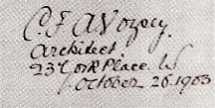 C. F. A. Voysey
Architect.
23 York Place. W
October 26. 1903